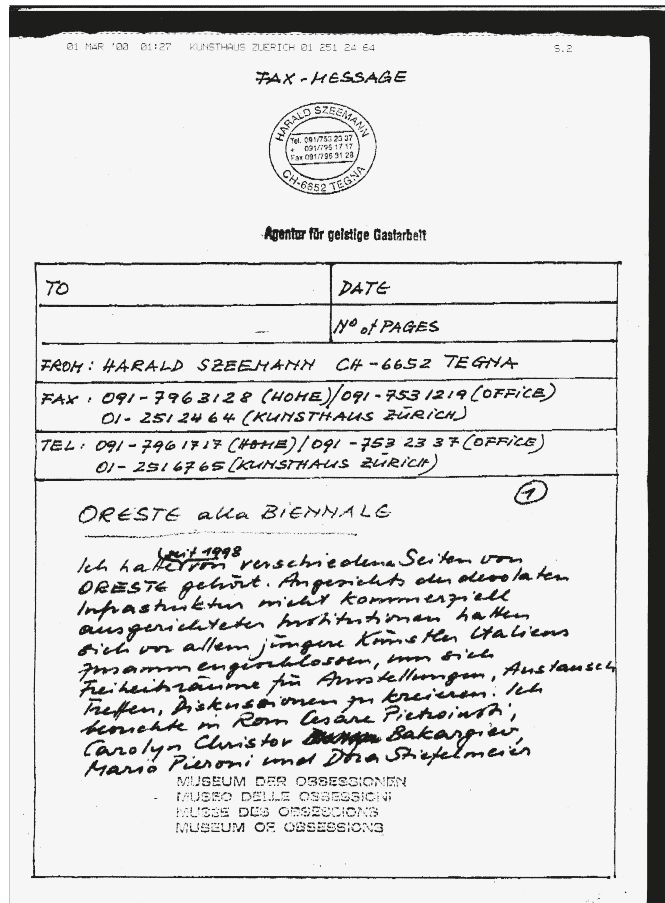 01 MAR '00 01:27 KUNSTHAUS ZUERICH 01 251 24 64 S.2
FAX-MESSAGE
HARALD SZEEMANN
Tel. 091/753 23 37
+ 091/796 17 17
Fax 091/796 31 28
CH-6652 TEGNA
Agentur für geistige Gastarbeit
TO DATE
No of PAGES
FROM: HARALD SZEEMANN CH-6652 TEGNA
FAX: 091-7963128 (HOME)/091-7531219 (OFFICE)
01-2512464 (KUNSTHAUS ZÜRICH)
TEL: 091-7961717 (HOME)/091-753 23 37 (OFFICE)
01-2516765 (KUNSTHAUS ZÜRICH)
1
ORESTE alla BIENNALE
seit 1998
Ich hatte von verschiedenen Seiten von
ORESTE gehört. Angesichts der desolaten
Infrastruktur nicht kommerziell
ausgerichteter Institutionen hatten
sich vor allem jüngere Künstler Italiens
zusammengeschlossen, um sich
Freiheitsräume für Ausstellungen, Austausch
Treffen, Diskussionen zu kreieren. Ich
besuchte in Rom Cesare Pietroiusti,
Carolyn Christov Bakargiev,
Mario Pieroni und Dora Stiefelmeier
MUSEUM DER OBSESSIONEN
MUSEO DELLE OSSESSIONI
MUSEE DES OBSESSIONS
MUSEUM OF OBSESSIONS